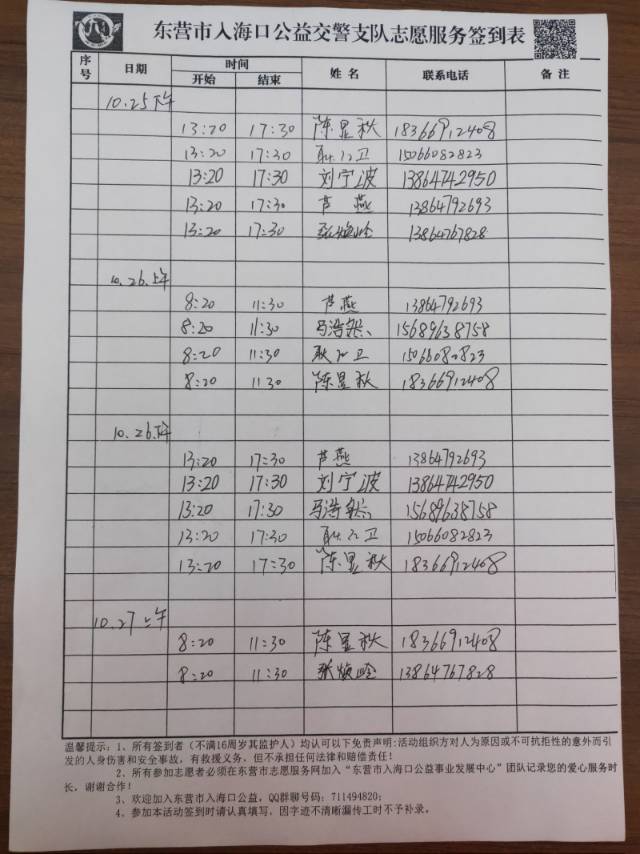 东营市入海口公益交警支队志愿服务签到表
序号 日期 时间 开始 结束 姓名 联系电话 备注
10.25下午
13:20 17:30 陈昱秋 18366912408
13:20 17:30 卫 15066082823
13:20 17:30 刘宁波 13864742950
13:20 17:30 芦燕 13864792693
13:20 17:30 张焕岭 13864767828
10.26.上午
8:20 11:30 芦燕 13864792693
8:20 11:30 马浩然 15689638758
8:20 11:30 耿 卫 15066082823
8:20 11:30 陈昱秋 18366912408
10.26.下午
13:20 17:30 芦燕 13864792693
13:20 17:30 刘宁波 13864742950
13:20 17:30 马浩然 15689638758
13:20 17:30 卫 15066082823
13:20 17:30 陈昱秋 18366912408
10.27上午
8:20 11:30 陈昱秋 18366912408
8:20 11:30 张焕岭 13864767828
温馨提示：1、所有签到者（不满16周岁其监护人）均认可以下免责声明:活动组织方对人为原因或不可抗拒性的意外而引
发的人身伤害和安全事故，有救援义务，但不承担任何法律和赔偿责任！
2、所有参加志愿者必须在东营市志愿服务网加入“东营市入海口公益事业发展中心”团队记录您的爱心服务时
长，谢谢合作！
3、欢迎加入东营市入海口公益，QQ群聊号码：711494820；
4、参加本活动签到时请认真填写，因字迹不清晰漏传工时不予补录。